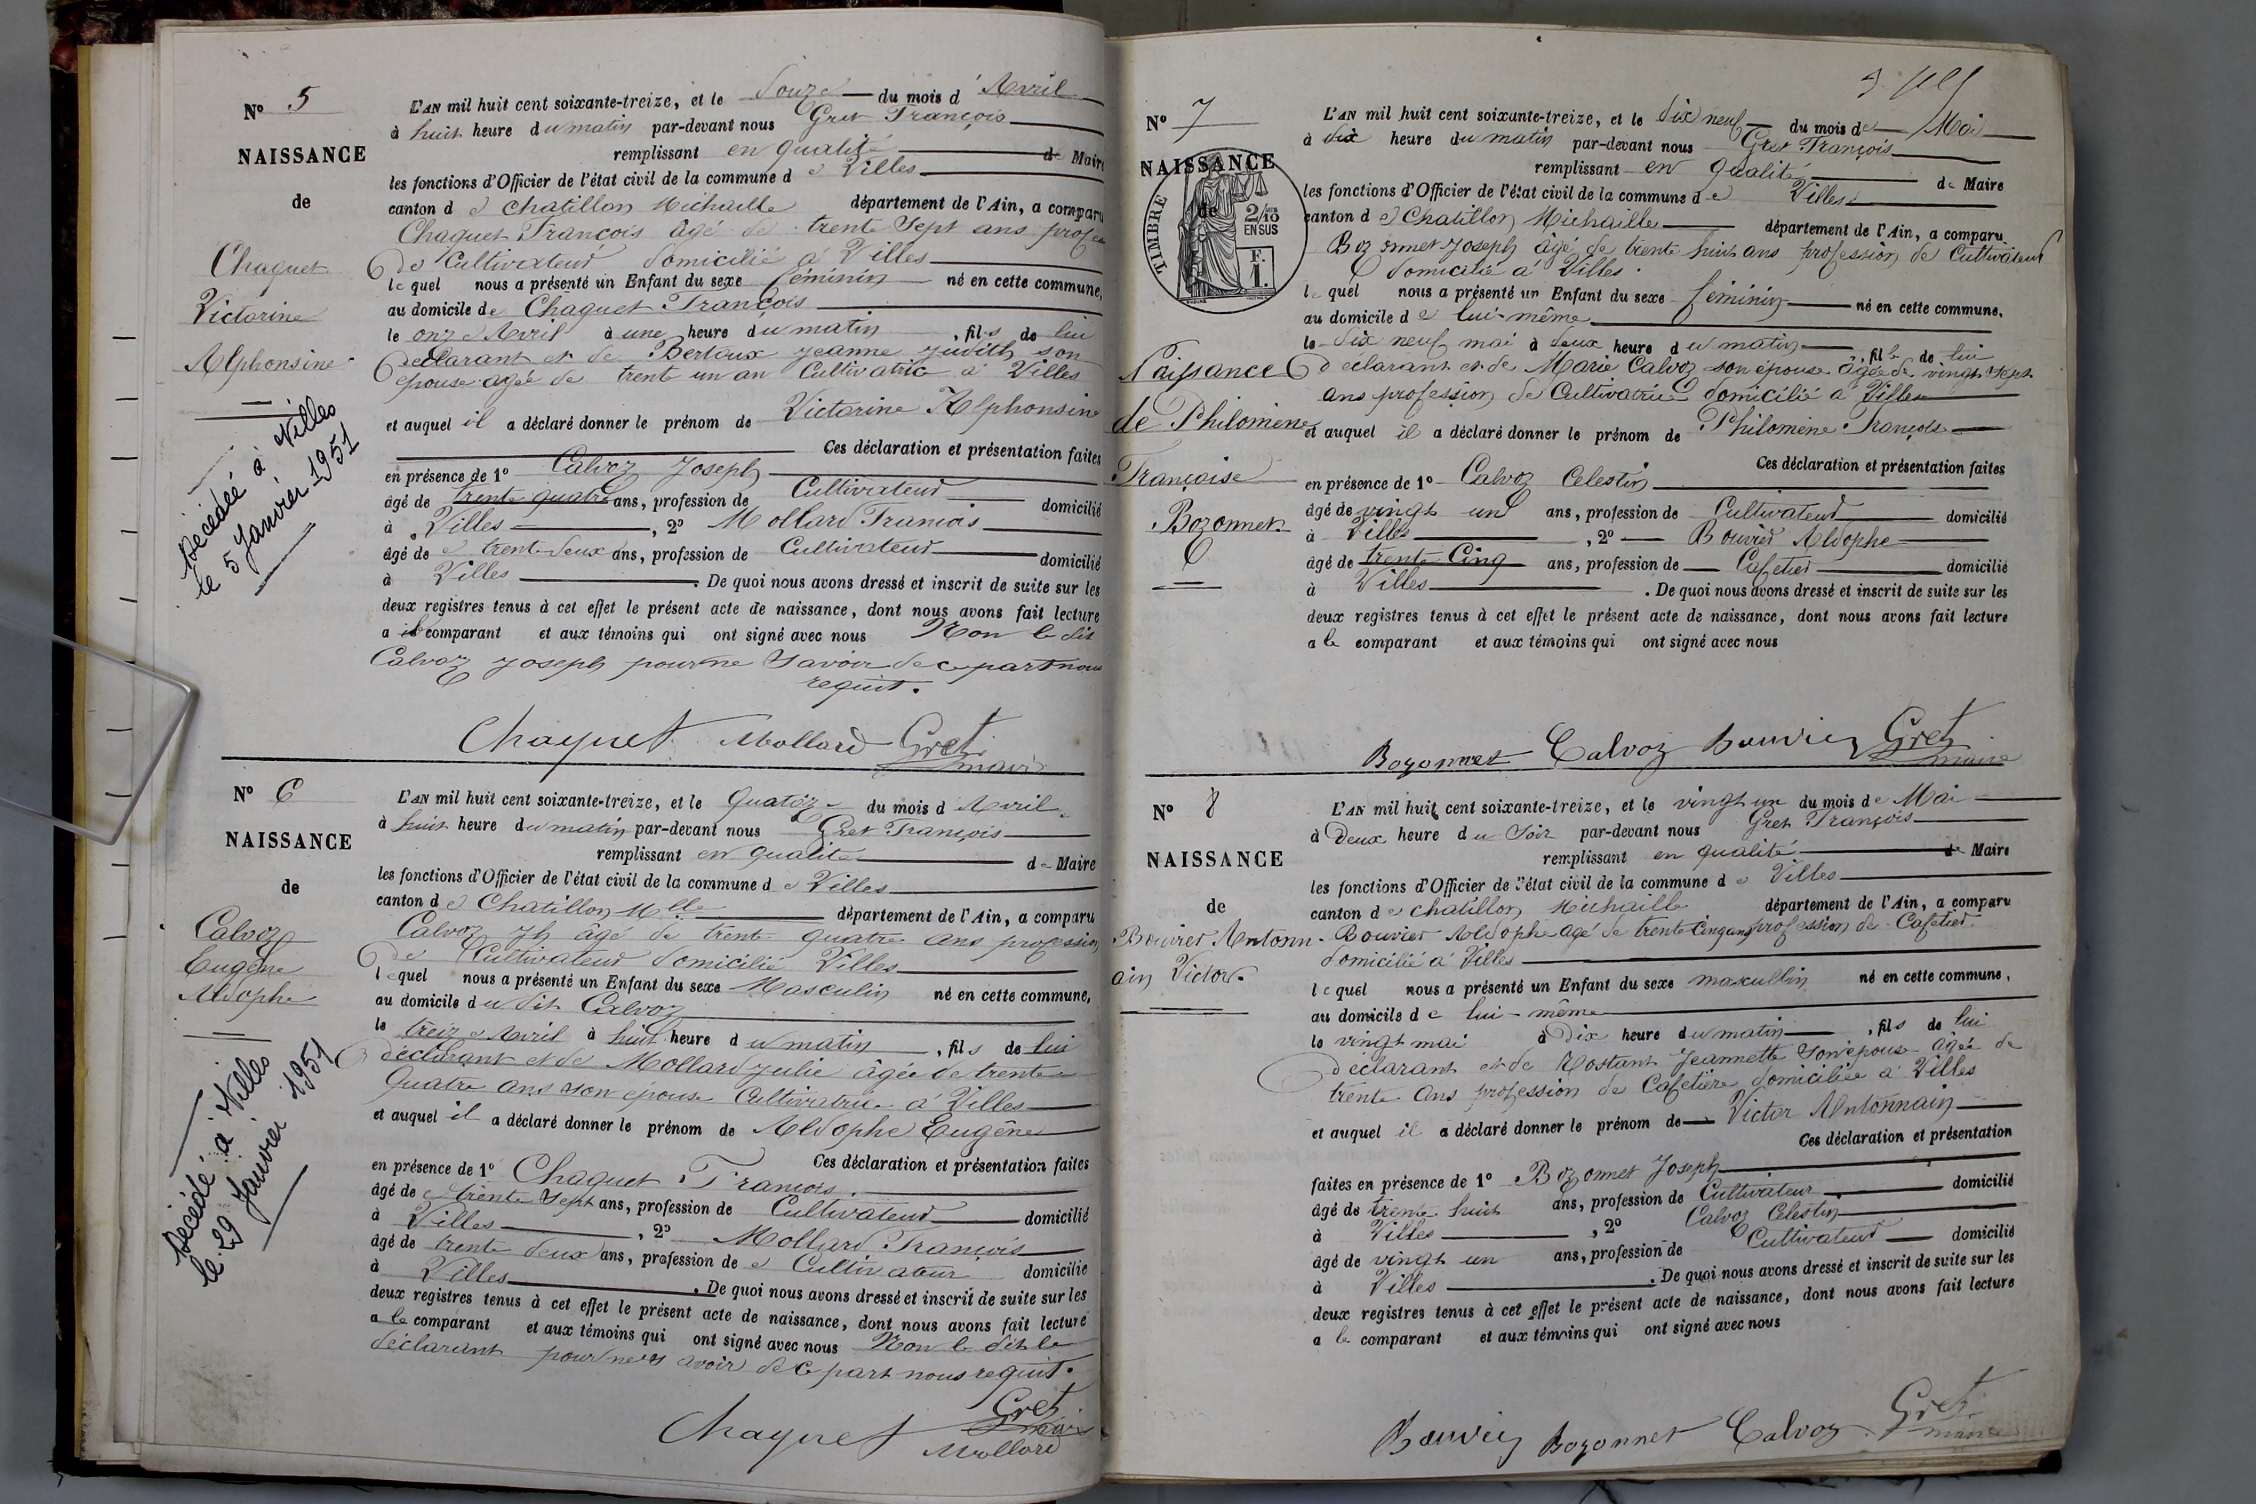 N° 5
NAISSANCE
de
Chaquet
Victorine
Alphonsine
Décédée à Villes
le 5 Janvier 1951
L'AN mil huit cent soixante-treize, et le Douze du mois d'Avril
à huit heure du matin par-devant nous Gret François
remplissant en qualité de Maire
les fonctions d'Officier de l'état civil de la commune de Villes
canton de Chatillon Michaille département de l'Ain, a comparu
Chaquet François âgé de trente Sept ans profes
de Cultivateur domicilié à Villes
lequel nous a présenté un Enfant du sexe féminin né en cette commune,
au domicile de Chaquet François
le onze Avril à une heure du matin, fils de lui
déclarant et de Bertoux Jeanne Judith son
epouse agée de trente un an Cultivatrice à Villes
et auquel il a déclaré donner le prénom de Victorine Alphonsine
Ces déclaration et présentation faites
en présence de 1° Calvoz Joseph
âgé de trente quatre ans, profession de Cultivateur domicilié
à Villes, 2° Mollard François
âgé de trente deux ans, profession de Cultivateur domicilié
à Villes. De quoi nous avons dressé et inscrit de suite sur les
deux registres tenus à cet effet le présent acte de naissance, dont nous avons fait lecture
a comparant et aux témoins qui ont signé avec nous Non le dit
Calvoz Joseph pour ne Savoir de ce part nous
requit.
Chaquet Mollard Gret
maire
N° 6
NAISSANCE
de
Calvoz
Eugène
Aldophe
Décédé à Villes
le 29 Janvier 1951
L'AN mil huit cent soixante-treize, et le Quatorze du mois d'Avril
à huit heure du matin par-devant nous Gret François
remplissant en qualité de Maire
les fonctions d'Officier de l'état civil de la commune de Villes
canton de Chatillon Mlle département de l'Ain, a comparu
Calvoz Jh âgé de trente quatre ans profession
de Cultivateur domicilié Villes
lequel nous a présenté un Enfant du sexe Masculin né en cette commune,
au domicile du dit Calvoz
le treize Avril à huit heure du matin, fils de lui
déclarant et de Mollard Julie âgée de trente
Quatre ans son épouse Cultivatrice à Villes
et auquel il a déclaré donner le prénom de Aldophe Eugène
Ces déclaration et présentation faites
en présence de 1° Chaquet François
âgé de trente Sept ans, profession de Cultivateur domicilié
à Villes, 2° Mollard François
âgé de trente deux ans, profession de Cultivateur domicilié
à Villes. De quoi nous avons dressé et inscrit de suite sur les
deux registres tenus à cet effet le présent acte de naissance, dont nous avons fait lecture
a le comparant et aux témoins qui ont signé avec nous Non le dit le
déclarant pour ne savoir de ce part nous requit.
Chaquet Gret
maire
Mollard
N° 7
NAISSANCE
de
TIMBRE
2/10
EN SUS
F.
1.
Naissance
de Philomène
Françoise
Bozonnet
L'AN mil huit cent soixante-treize, et le dix neuf du mois de Mai
à dix heure du matin par-devant nous Gret François
remplissant en qualité de Maire
les fonctions d'Officier de l'état civil de la commune de Villes
canton de Chatillon Michaille département de l'Ain, a comparu
Bozonnet Joseph âgé de trente huit ans profession de Cultivateur
domicilié à Villes.
lequel nous a présenté un Enfant du sexe féminin né en cette commune,
au domicile de lui-même
le dix neuf mai à deux heure du matin, fille de lui
déclarant et de Marie Calvoz son épouse âgée de vingt sept
ans profession de Cultivatrice domicilié à Villes
et auquel il a déclaré donner le prénom de Philomène François
Ces déclaration et présentation faites
en présence de 1° Calvoz Celestin
âgé de vingt un ans, profession de Cultivateur domicilié
à Villes, 2° Bouvier Aldophe
âgé de trente Cinq ans, profession de Cafetier domicilié
à Villes. De quoi nous avons dressé et inscrit de suite sur les
deux registres tenus à cet effet le présent acte de naissance, dont nous avons fait lecture
a le comparant et aux témoins qui ont signé avec nous
Bozonnet Calvoz Bouvier Gret
maire
N° 8
NAISSANCE
de
Bouvier Antonn
ain Victor.
L'AN mil huit cent soixante-treize, et le vingt un du mois de Mai
à Deux heure du Soir par-devant nous Gret François
remplissant en qualité de Maire
les fonctions d'Officier de l'état civil de la commune de Villes
canton de chatillon Michaille département de l'Ain, a comparu
Bouvier Aldophe agé de trente Cinq ans profession de Cafetier
domicilié à Villes
lequel nous a présenté un Enfant du sexe masculin né en cette commune,
au domicile de lui-même
le vingt mai à Dix heure du matin, fils de lui
déclarant et de Rostant Jeannette Son épouse âgée de
trente ans profession de Cafetière domiciliée à Villes
et auquel il a déclaré donner le prénom de Victor Antonnain
Ces déclaration et présentation
faites en présence de 1° Bozonnet Joseph
âgé de trente huit ans, profession de Cultivateur domicilié
à Villes, 2° Calvoz Celestin
âgé de vingt un ans, profession de Cultivateur domicilié
à Villes. De quoi nous avons dressé et inscrit de suite sur les
deux registres tenus à cet effet le présent acte de naissance, dont nous avons fait lecture
a le comparant et aux témoins qui ont signé avec nous
Bouvier Bozonnet Calvoz Gret
maire